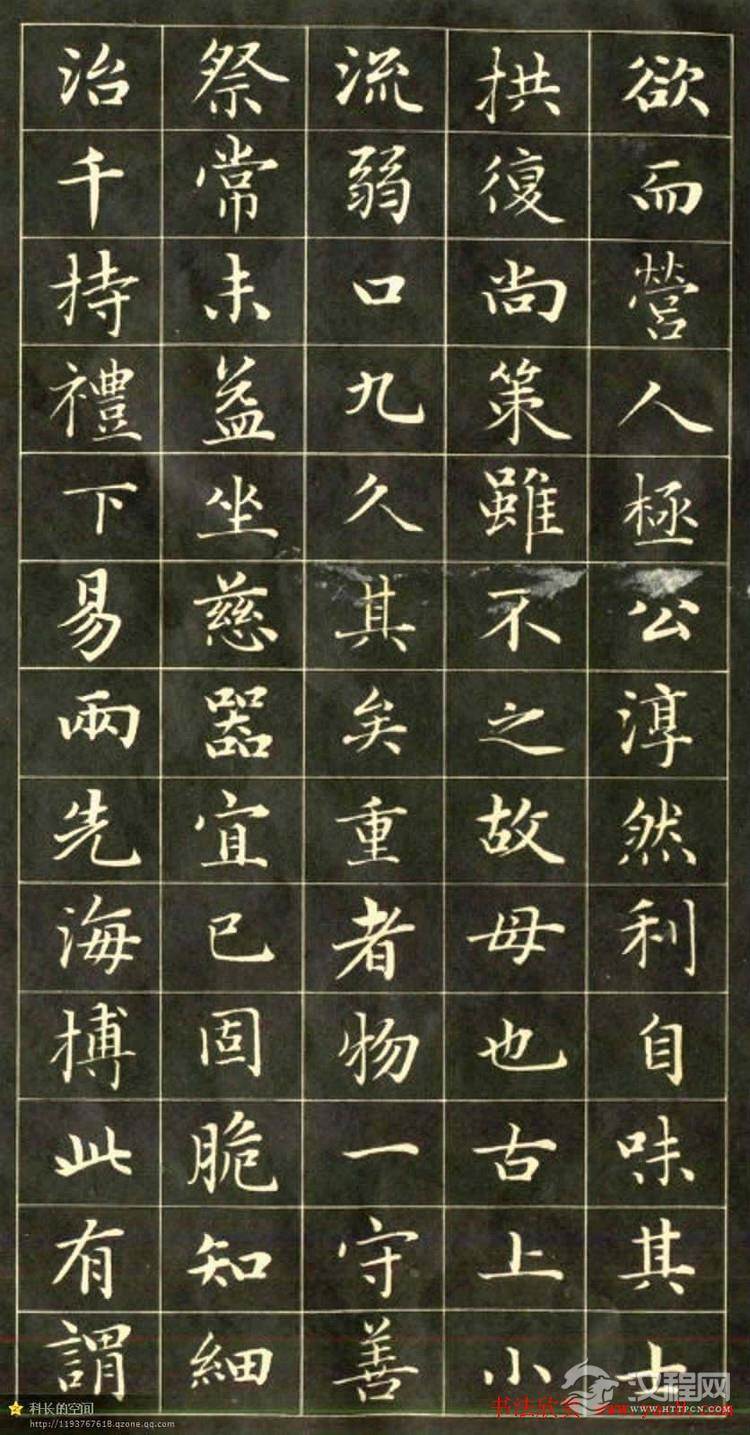 欲而營人極公淳然利自味其士
拱復尚策雖不之故毋也古上小
流弱口九久其矣重者物一守善
祭常未益坐慈器宜已固脆知細
治千持禮下易兩先海搏此有謂
科长的空间
http://1193767618.qzone.qq.com
书法欣
汉程网
WWW.HTTPCN.COM